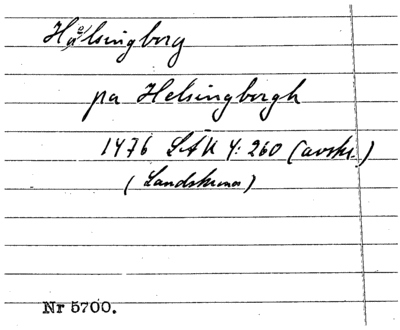 Hälsingborg
pa Helsingborgh
1476 LÄU 4: 260 (avskr.)
(Landskrona)
Nr 5700.